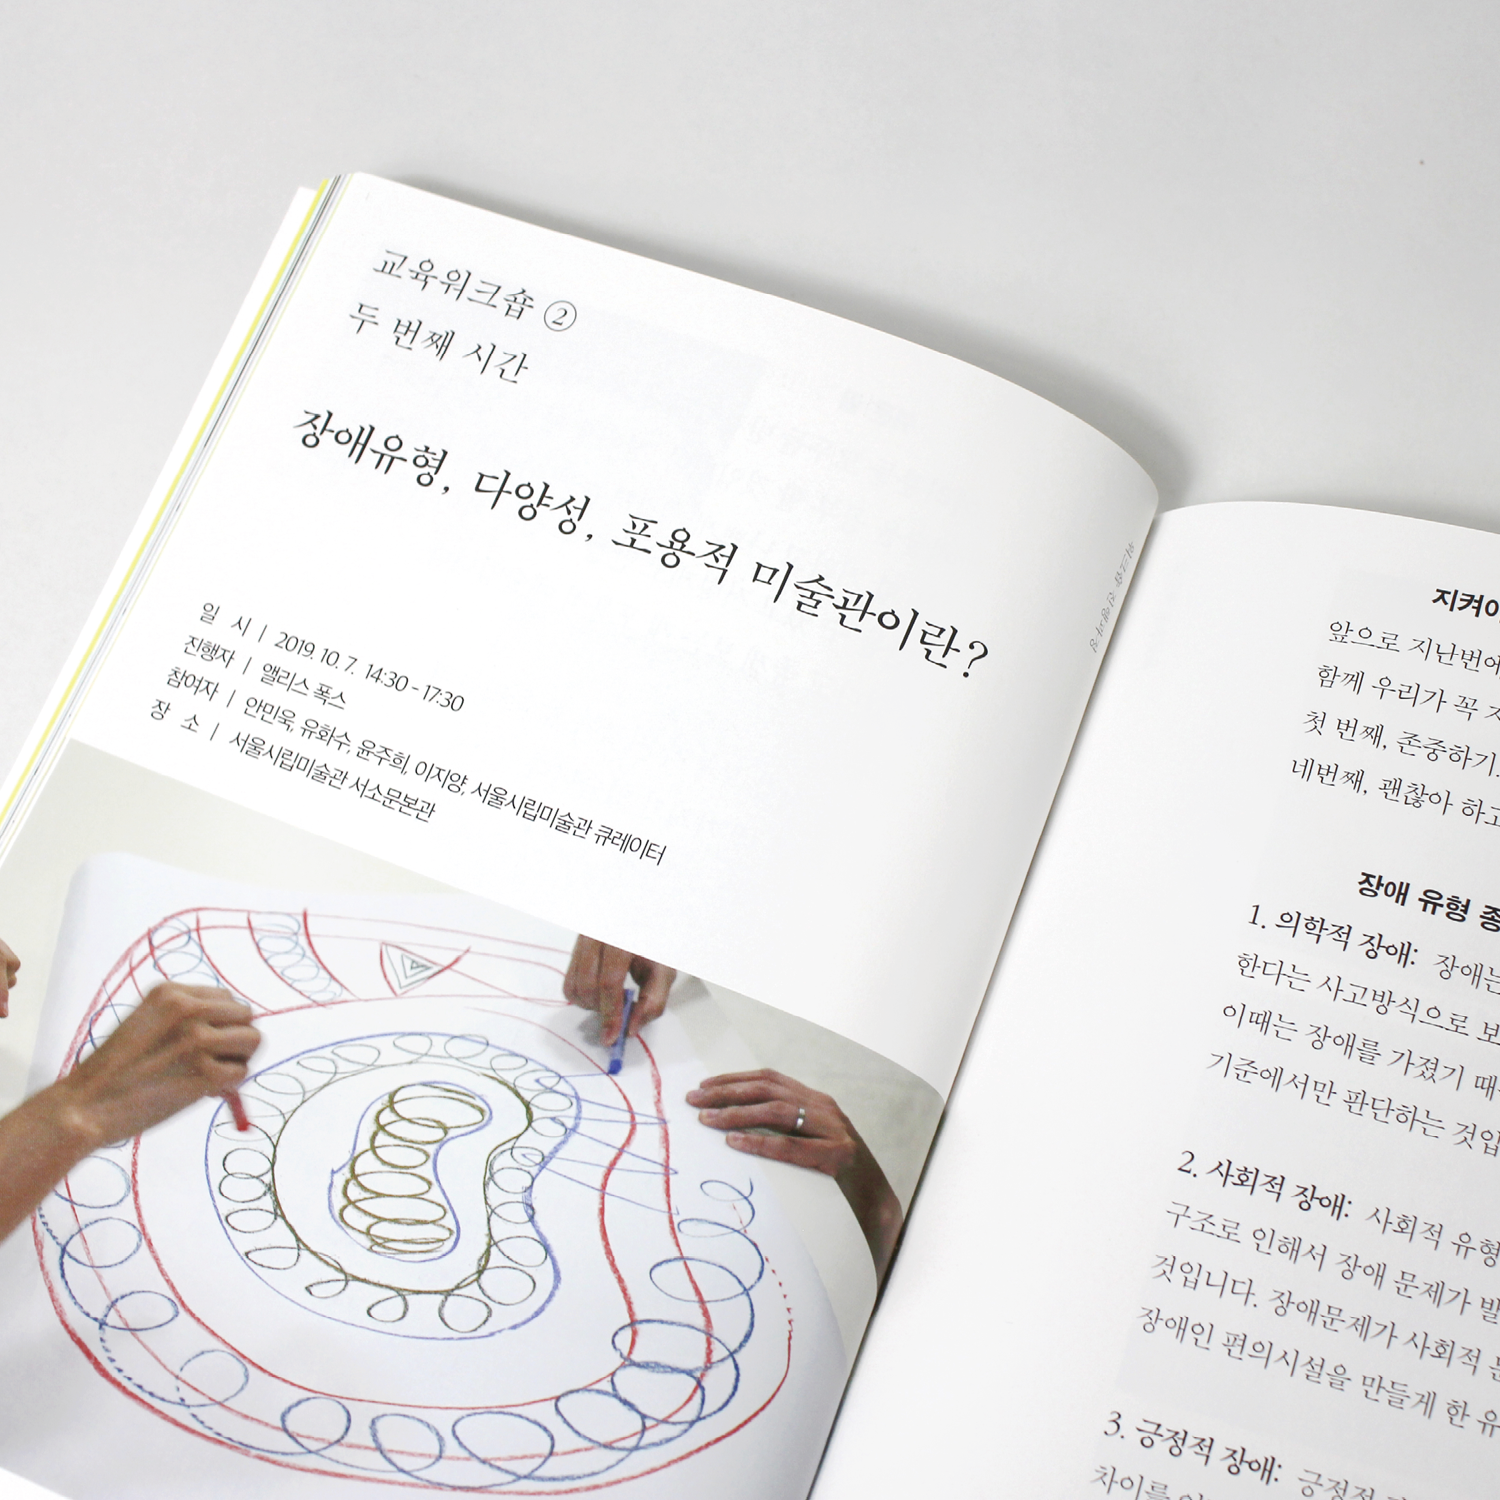 교육워크숍 ②
두 번째 시간
장애유형, 다양성, 포용적 미술관이란?
일 시 | 2019. 10. 7. 14:30 - 17:30
진행자 | 앨리스 폭스
참여자 | 안민욱, 유화수, 윤주희, 이지양, 서울시립미술관 큐레이터
장 소 | 서울시립미술관 서소문본관
워크숍 진행과정
지켜야
앞으로 지난번에
함께 우리가 꼭
첫 번째, 존중하기.
네번째, 괜찮아 하고
장애 유형
1. 의학적 장애: 장애는
한다는 사고방식으로 보
이때는 장애를 가졌기 때
기준에서만 판단하는 것입
2. 사회적 장애: 사회적 유형
구조로 인해서 장애 문제가 발
것입니다. 장애문제가 사회적
장애인 편의시설을 만들게 한 유
3. 긍정적 장애: 긍정적
차이를